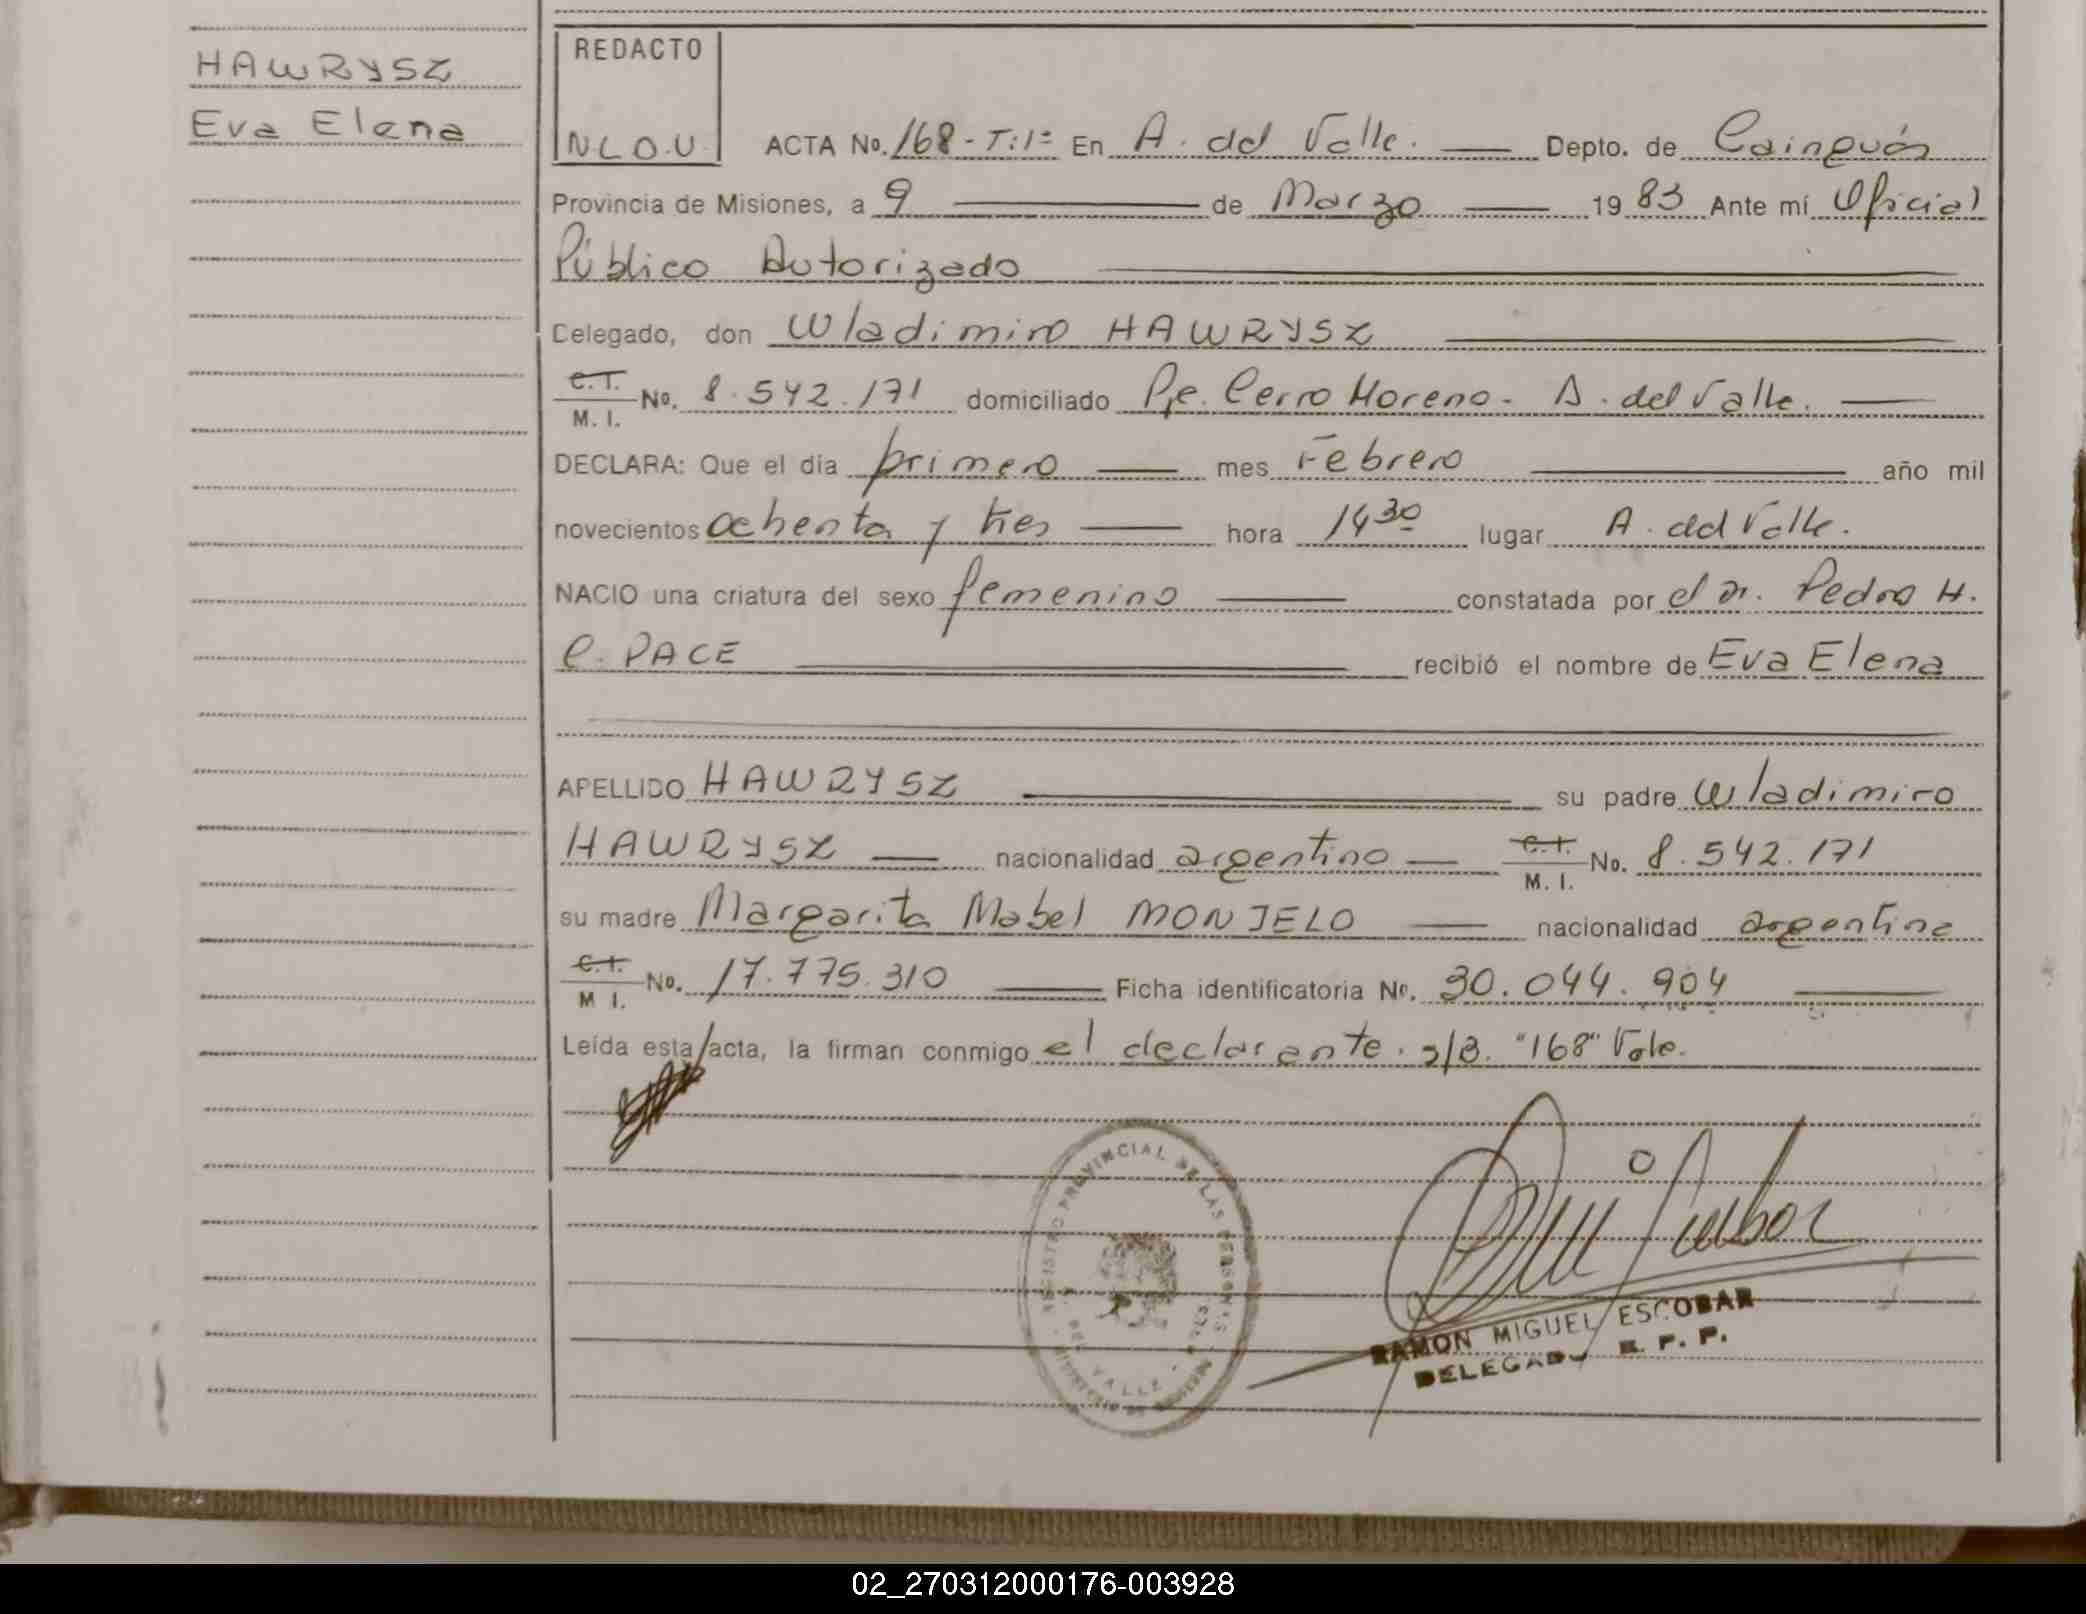 HAWRYSZ
Eva Elena
REDACTO
N L O.U.
ACTA No. 168-T:1º En A. del Valle. Depto. de Cainguás
Provincia de Misiones, a 9 de Marzo 1983 Ante mí Oficial
Público Autorizado
Delegado, don Wladimiro HAWRYSZ
C.I. M. I. No. 8.542.171 domiciliado Pje. Cerro Moreno - A. del Valle.
DECLARA: Que el día primero mes Febrero año mil
novecientos ochenta y tres hora 14 30 lugar A. del Valle.
NACIO una criatura del sexo femenino constatada por el Dr. Pedro H.
C. PACE recibió el nombre de Eva Elena
APELLIDO HAWRYSZ su padre Wladimiro
HAWRYSZ nacionalidad argentino C.I. M. I. No. 8.542.171
su madre Margarita Mabel MONJELO nacionalidad argentina
C.I. M I. No. 17.775.310 Ficha identificatoria Nº. 30.044.904
Leída esta acta, la firman conmigo el declarante. s/B. "168" Vale.
REGISTRO PROVINCIAL DE LAS PERSONAS
DEL VALLE
RAMON MIGUEL ESCOBAR
DELEGADO R. P. P.
02_270312000176-003928